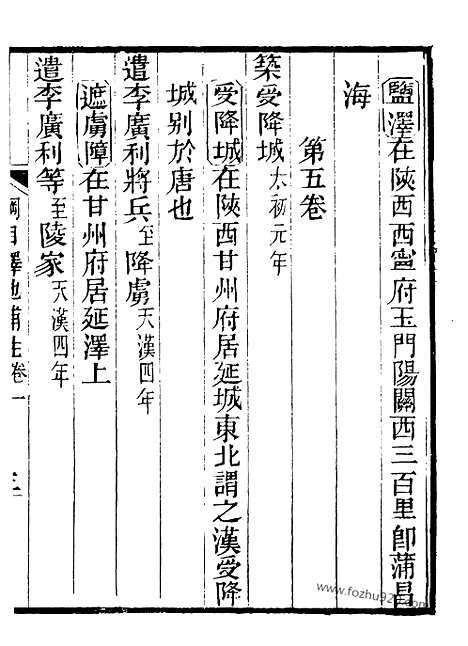 鹽澤在陝西西寧府玉門陽關西三百里卽蒲昌
海
第五卷
築受降城太初元年
受降城在陝西甘州府居延城東北謂之漢受降
城別於唐也
遣李廣利將兵至降虜天漢四年
遮虜障在甘州府居延澤上
遣李廣利等至陵家天漢四年
綱目釋地補注卷一
三
www.fozhu920.com